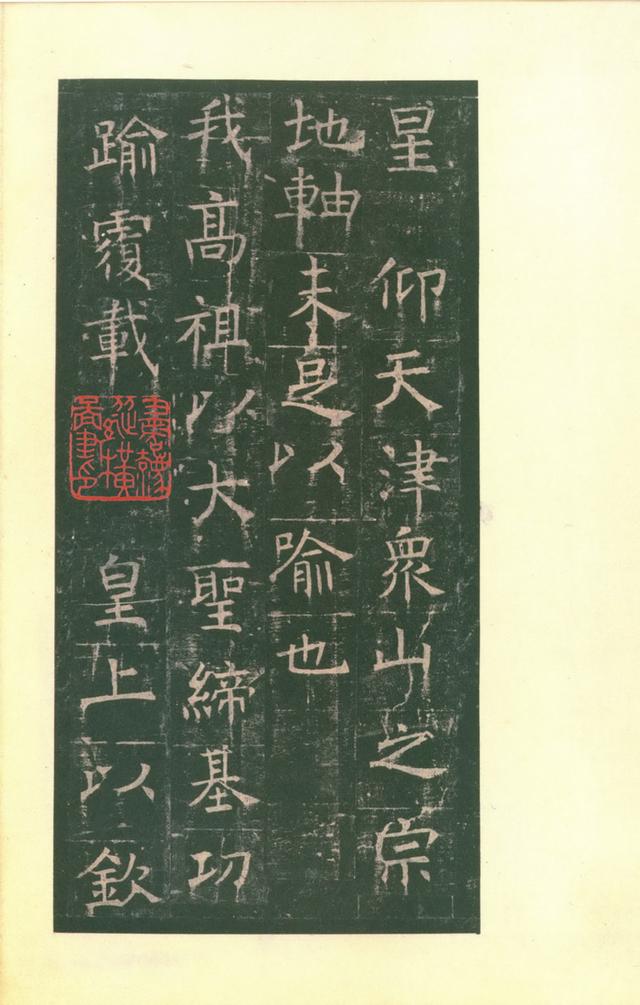 星 仰天津衆山之宗
地軸未足以喻也
我高祖以大聖締基功
踰覆載 皇上以欽